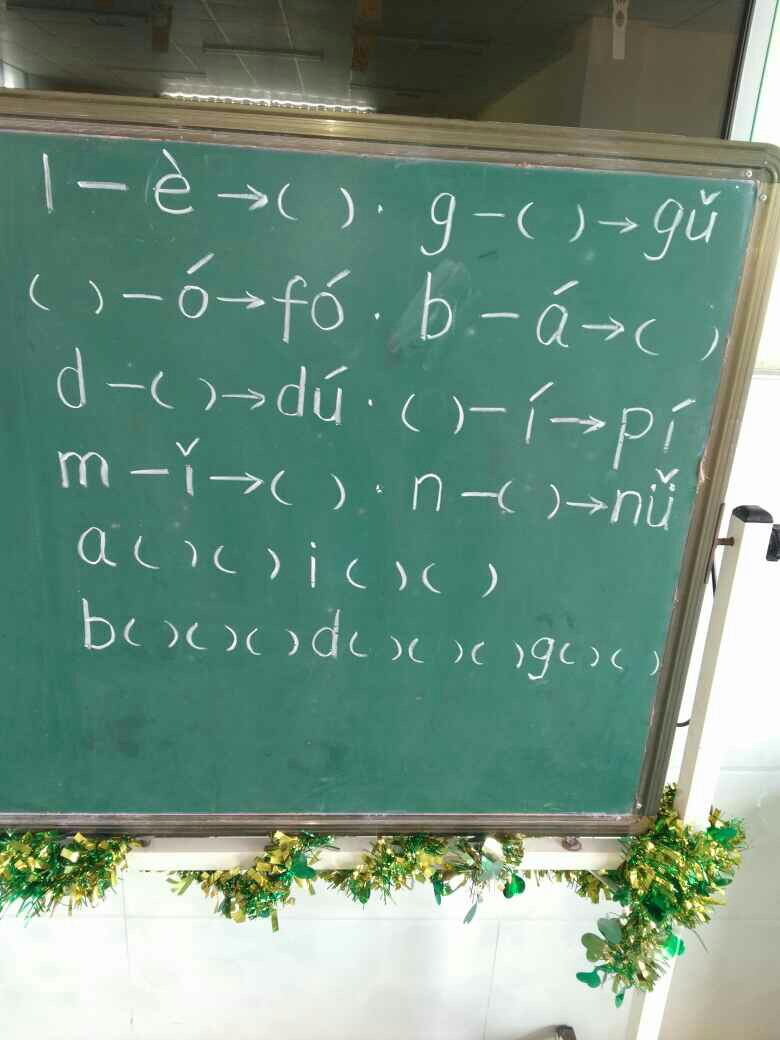 l — è → ( ) . g — ( ) → gǔ
( ) — ó → fó . b — á → ( )
d — ( ) → dú . ( ) — í → pí
m — ǐ → ( ) . n — ( ) → nǚ
a ( ) ( ) i ( ) ( )
b ( ) ( ) ( ) d ( ) ( ) ( ) g ( ) ( )